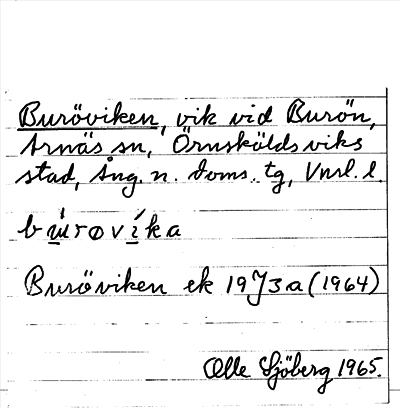 Buröviken, vik vid Burön,
Arnäs sn, Örnsköldsviks
stad, Ång. n. doms. tg, Vnrl. l.
búrøvíka
Buröviken ek 19J3a (1964)
Olle Sjöberg 1965.